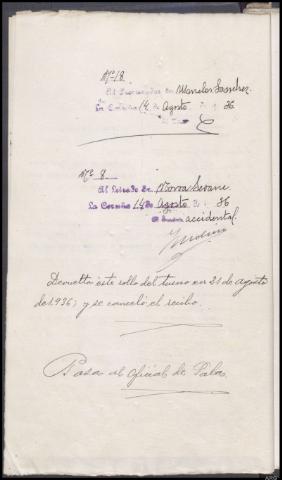 Nº 18.
Al Procurador Sr. Morales Sanchez.
La Coruña 14 de Agosto de 1936
Nº 8.
Al Letrado Sr.
La Coruña 14 de Agosto de 1936
accidental.
Devuelto este rollo del turno en 21 de agosto
de 1936; y se canceló el recibo.
Pasa al Oficial de Sala.